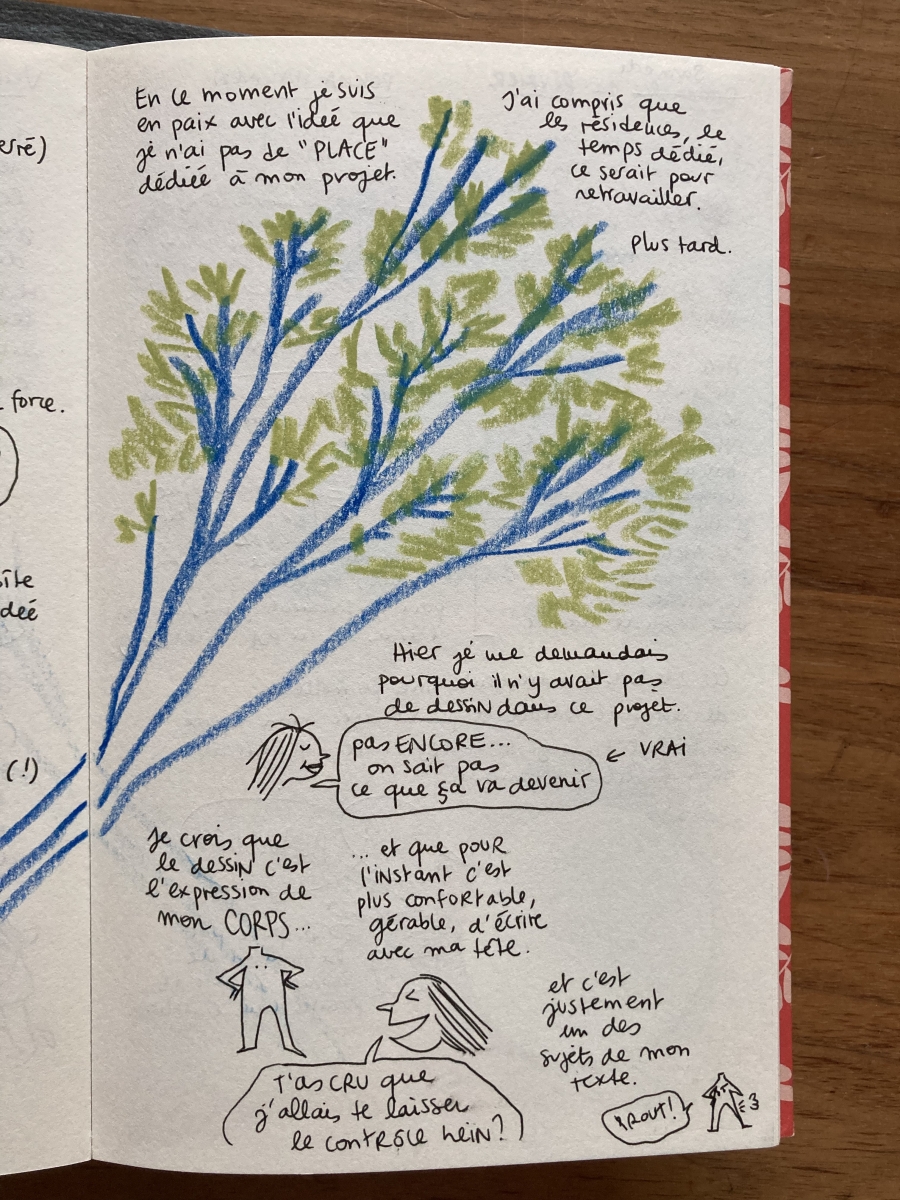 En ce moment je suis
en paix avec l'ideé que
jé n'ai pas de "PLACE"
dédiéé à mon projet.
J'ai compris que
les résidences, le
temps dédié,
ce serait pour
retravailler.
Plus tard.
force.
deé
(!)
Hier jé me demandais
pourquoi il n'y avait pas
de dessin dans ce projet.
pas ENCORE...
on sait pas
ce que ça va devenir
← VRAi
Je crois que
le dessin c'est
l'expression de
mon CORPS...
... et que pour
l'instant c'est
plus confortable,
gérable, d'écrire
avec ma tête.
et c'est
justement
un des
sujets de mon
texte.
T'as CRU que
j'allais te laisser
le contrôle hein?
PROUT!